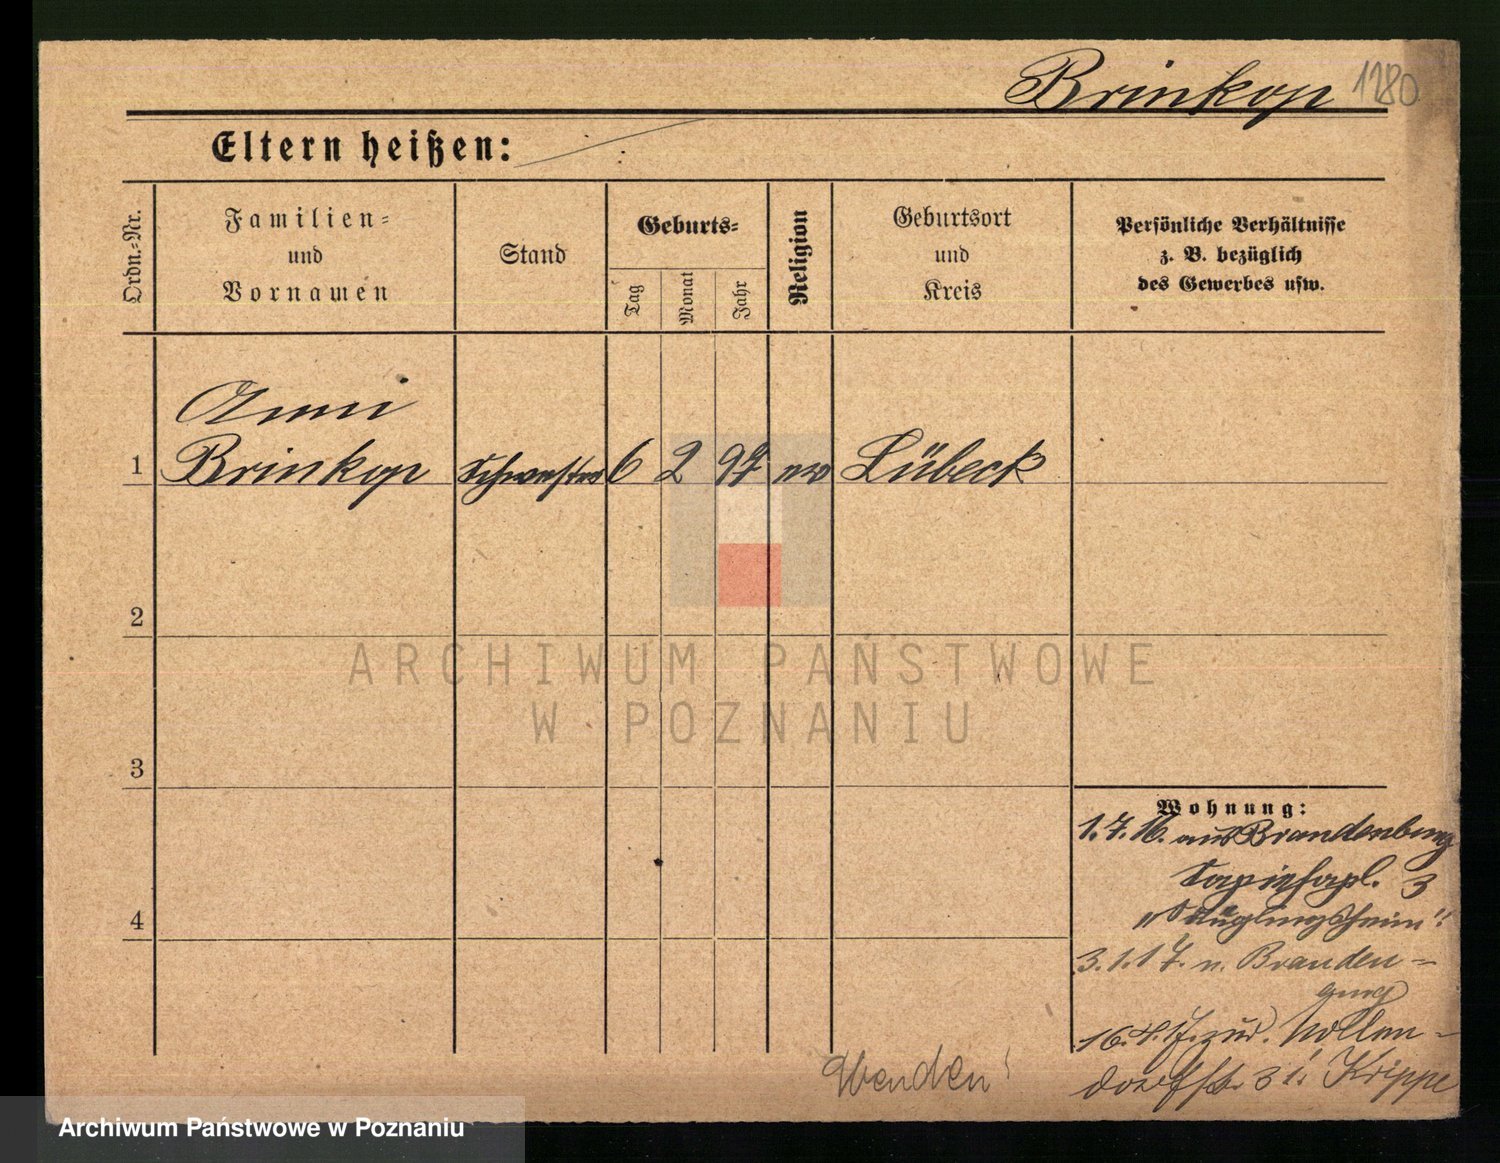 Brinkop 1280
Eltern heißen:
Ordn.-Nr.
Familien-
und
Vornamen
Stand
Geburts-
Tag
Monat
Jahr
Religion
Geburtsort
und
Kreis
Persönliche Verhältnisse
z. B. bezüglich
des Gewerbes usw.
Anni
1 Brinkop Schwester 6 2 97 ev Lübeck
2
ARCHIWUM PAŃSTWOWE
W POZNANIU
3
Wohnung:
1.7.16. aus Brandenburg
3
4
"Säuglingsheim"
3.1.17. n. Branden=
burg
16.4.17. zur. Nollen-
dorfstr. 31. Krippe
Wenden!
Archiwum Państwowe w Poznaniu